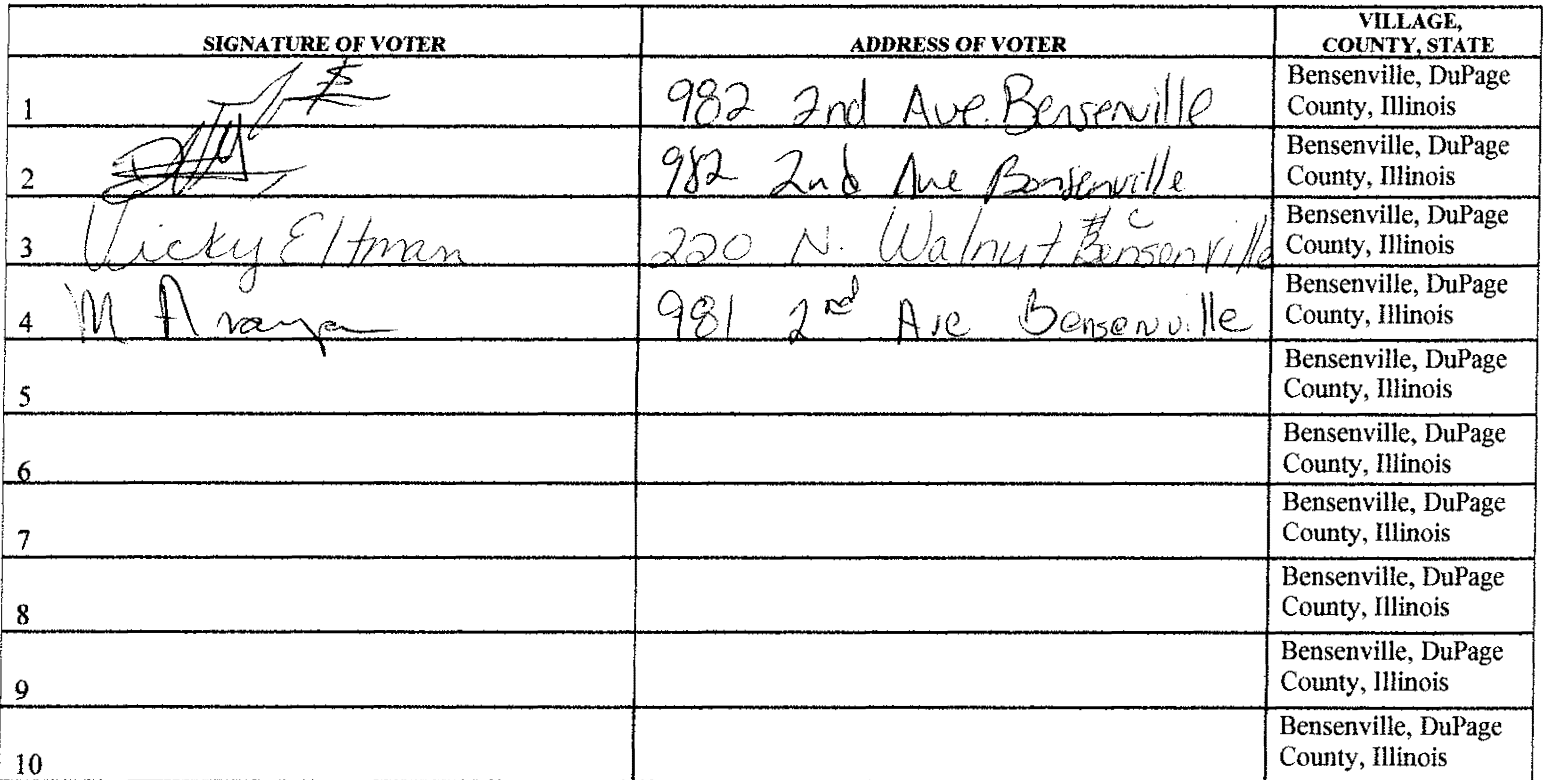 SIGNATURE OF VOTER ADDRESS OF VOTER VILLAGE, COUNTY, STATE
1 982 2nd Ave. Bensenville Bensenville, DuPage County, Illinois
2 982 2nd Ave Bensenville Bensenville, DuPage County, Illinois
3 Vicky Eltman 220 N. Walnut #C Bensenville Bensenville, DuPage County, Illinois
4 M Araya 981 2nd Ave Bensenville Bensenville, DuPage County, Illinois
5 Bensenville, DuPage County, Illinois
6 Bensenville, DuPage County, Illinois
7 Bensenville, DuPage County, Illinois
8 Bensenville, DuPage County, Illinois
9 Bensenville, DuPage County, Illinois
10 Bensenville, DuPage County, Illinois